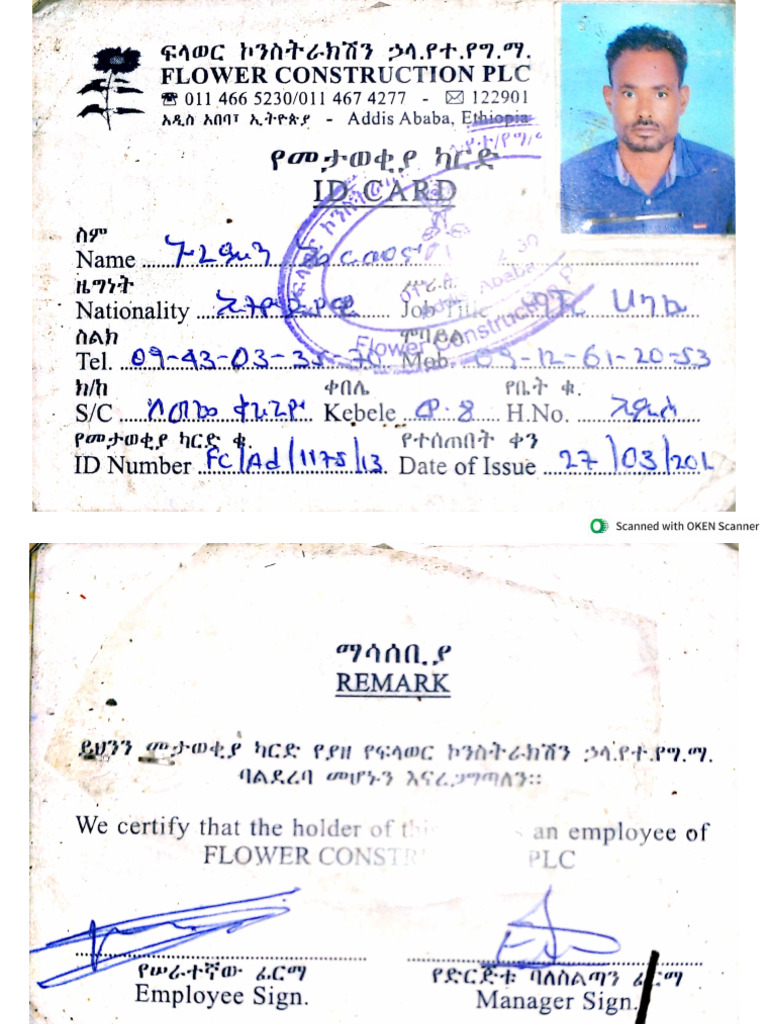 ፍላወር ኮንስትራክሽን ኃላ.የተ.የግ.ማ.
FLOWER CONSTRUCTION PLC
☎ 011 466 5230/011 467 4277 - ✉ 122901
አዲስ አበባ፣ ኢትዮጵያ - Addis Ababa, Ethiopia
የመታወቂያ ካርድ
ID CARD
ስም
Name
ዜግነት
Nationality ኢትዮጵያዊ Job Title
ስልክ ሞባይል
Tel. 09-43-03-35-70 Mob. 09-12-61-20-53
ክ/ከ ቀበሌ የቤት ቁ.
S/C Kebele ወ-8 H.No. አዲስ
የመታወቂያ ካርድ ቁ. የተሰጠበት ቀን
ID Number FC/Ad/1175/13 Date of Issue 27/03/201
Addis Ababa
Flower Construction P
Scanned with OKEN Scanner
ማሳሰቢያ
REMARK
ይህንን መታወቂያ ካርድ የያዘ የፍላወር ኮንስትራክሽን ኃላ.የተ.የግ.ማ.
ባልደረባ መሆኑን እናረጋግጣለን።
We certify that the holder of this an employee of
FLOWER CONSTR PLC
የሠራተኛው ፊርማ የድርጅቱ ባለስልጣን ፊርማ
Employee Sign. Manager Sign.